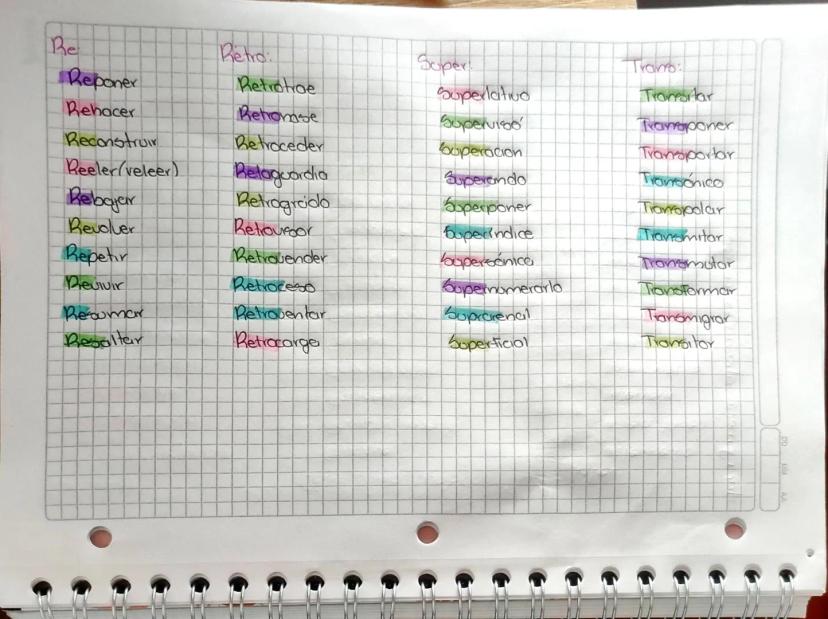 Re
Reponer
Rehacer
Reconstruir
Reeler(veleer)
Rebajar
Revolver
Repetir
Revivir
Resumar
Resaltar
Retro:
Retrotrae
Retroceder
Retaguardia
Retrovisor
Retrovender
Retroceso
Retroventar
Retrocarga
Super:
Superlativo
Supervisó
Superacion
Superando
Superponer
Superíndice
Supersónica
Suprarenal
Superficial
Trans:
Transponer
Transportar
Transónico
Transpolar
Transmitar
Transmutar
Transformar
Transmigrar
Transitar